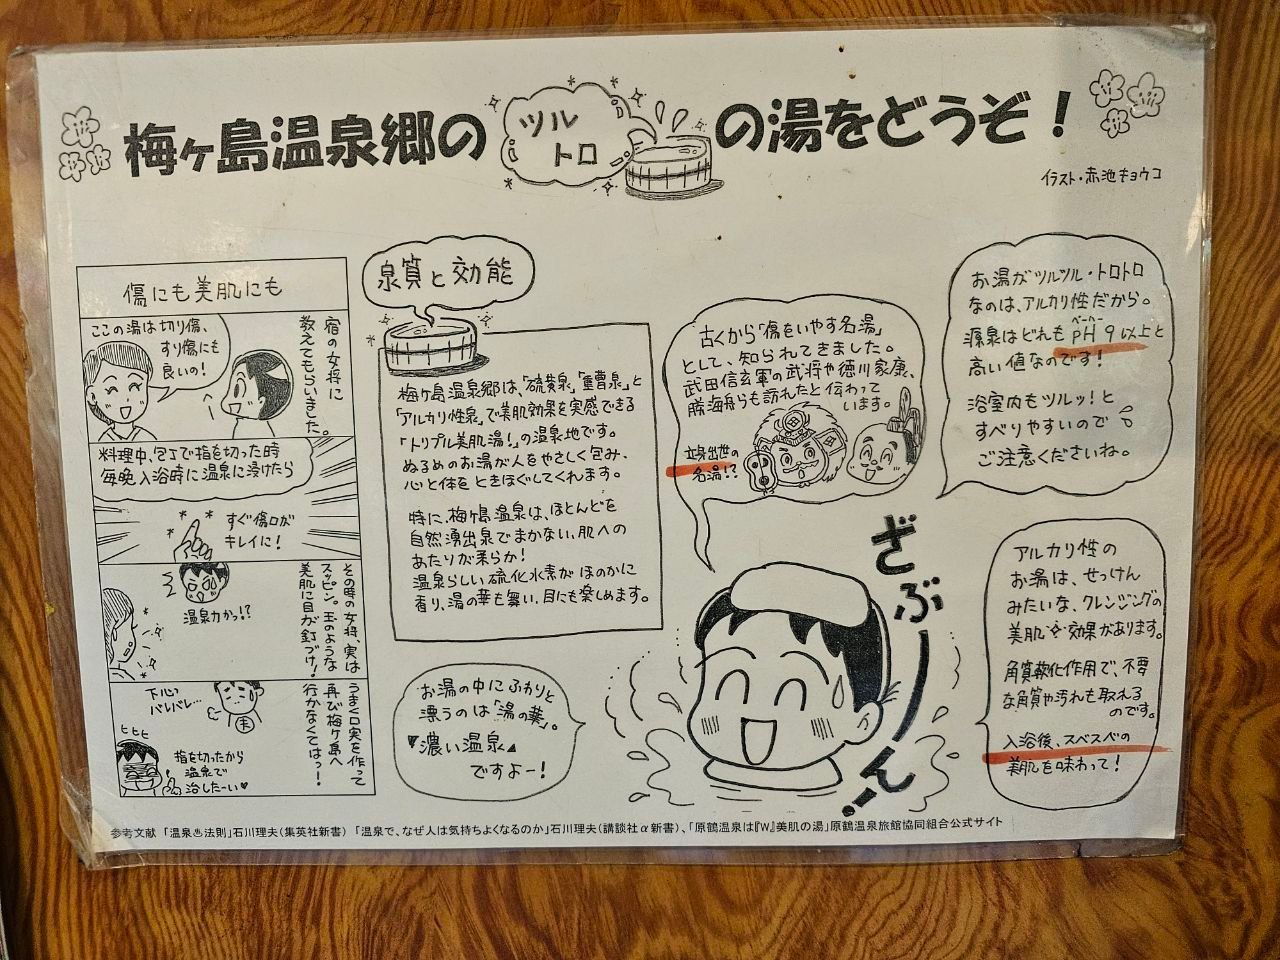 梅ヶ島温泉郷のツルトロの湯をどうぞ！
イラスト・赤池キョウコ
傷にも美肌にも
宿の女将に
教えてもらいました。
ここの湯は切り傷、
すり傷にも
良いの！
料理中、包丁で指を切った時
毎晩入浴時に温泉に浸けたら
すぐ傷口が
キレイに！
その時の女将、実は
スッピン。玉のような
美肌に目が釘づけ！
温泉力かっ!?
うまく口実を作って
再び梅ヶ島へ
行かなくてはっ！
下心
バレバレ…
ヒヒヒ
指を切ったから
温泉で
浴したーい♥
泉質と効能
梅ヶ島温泉郷は、「硫黄泉」「重曹泉」と
「アルカリ性泉」で美肌効果を実感できる
「トリプル美肌湯！」の温泉地です。
ぬるめのお湯が人をやさしく包み、
心と体をときほぐしてくれます。
特に、梅ヶ島温泉は、ほとんどを
自然湧出泉でまかない、肌への
あたりが柔らか！
温泉らしい硫化水素がほのかに
香り、湯の華も舞い、目にも楽しめます。
お湯の中にふわりと
漂うのは「湯の華」。
濃い温泉
ですよー！
古くから「傷をいやす名湯」
として、知られてきました。
武田信玄軍の武将や徳川家康、
勝海舟らも訪れたと伝わって
います。
立身出世の
名湯!?
ざぶーーん！
お湯がツルツル・トロトロ
なのは、アルカリ性だから。
源泉はどれもpH9以上と
ペーハー
高い値なのです！
浴室内もツルッ！と
すべりやすいので
ご注意くださいね。
アルカリ性の
お湯は、せっけん
みたいな、クレンジングの
美肌効果があります。
角質軟化作用で、不要
な角質や汚れも取れる
のです。
入浴後、スベスベの
美肌を味わって！
参考文献 「温泉♨法則」石川理夫（集英社新書） 「温泉で、なぜ人は気持ちよくなるのか」石川理夫（講談社α新書）、「原鶴温泉は『W』美肌の湯」原鶴温泉旅館協同組合公式サイト